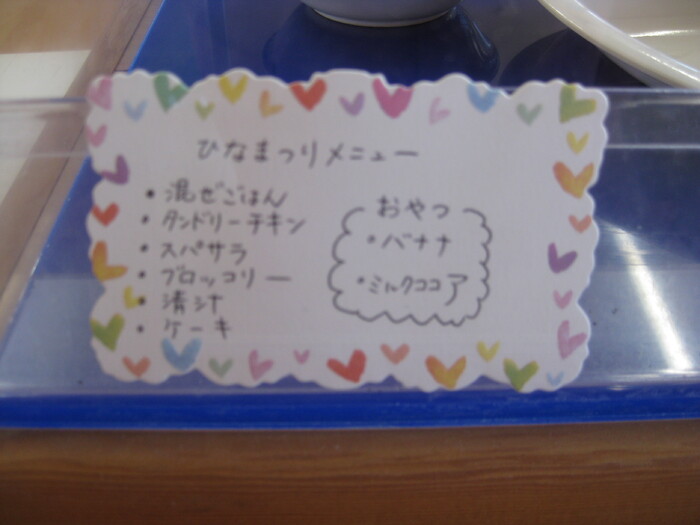 ひなまつりメニュー
・混ぜごはん
・タンドリーチキン
・スパサラ
・ブロッコリー
・清汁
・ケーキ
おやつ
・バナナ
・ミルクココア